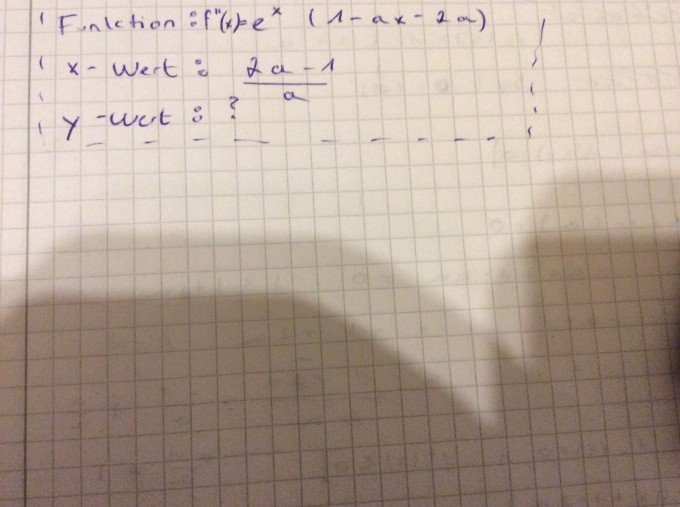 Funktion : f''(x)=e^x (1-ax-2a)
x-Wert : (2a-1)/a
y-Wert : ?